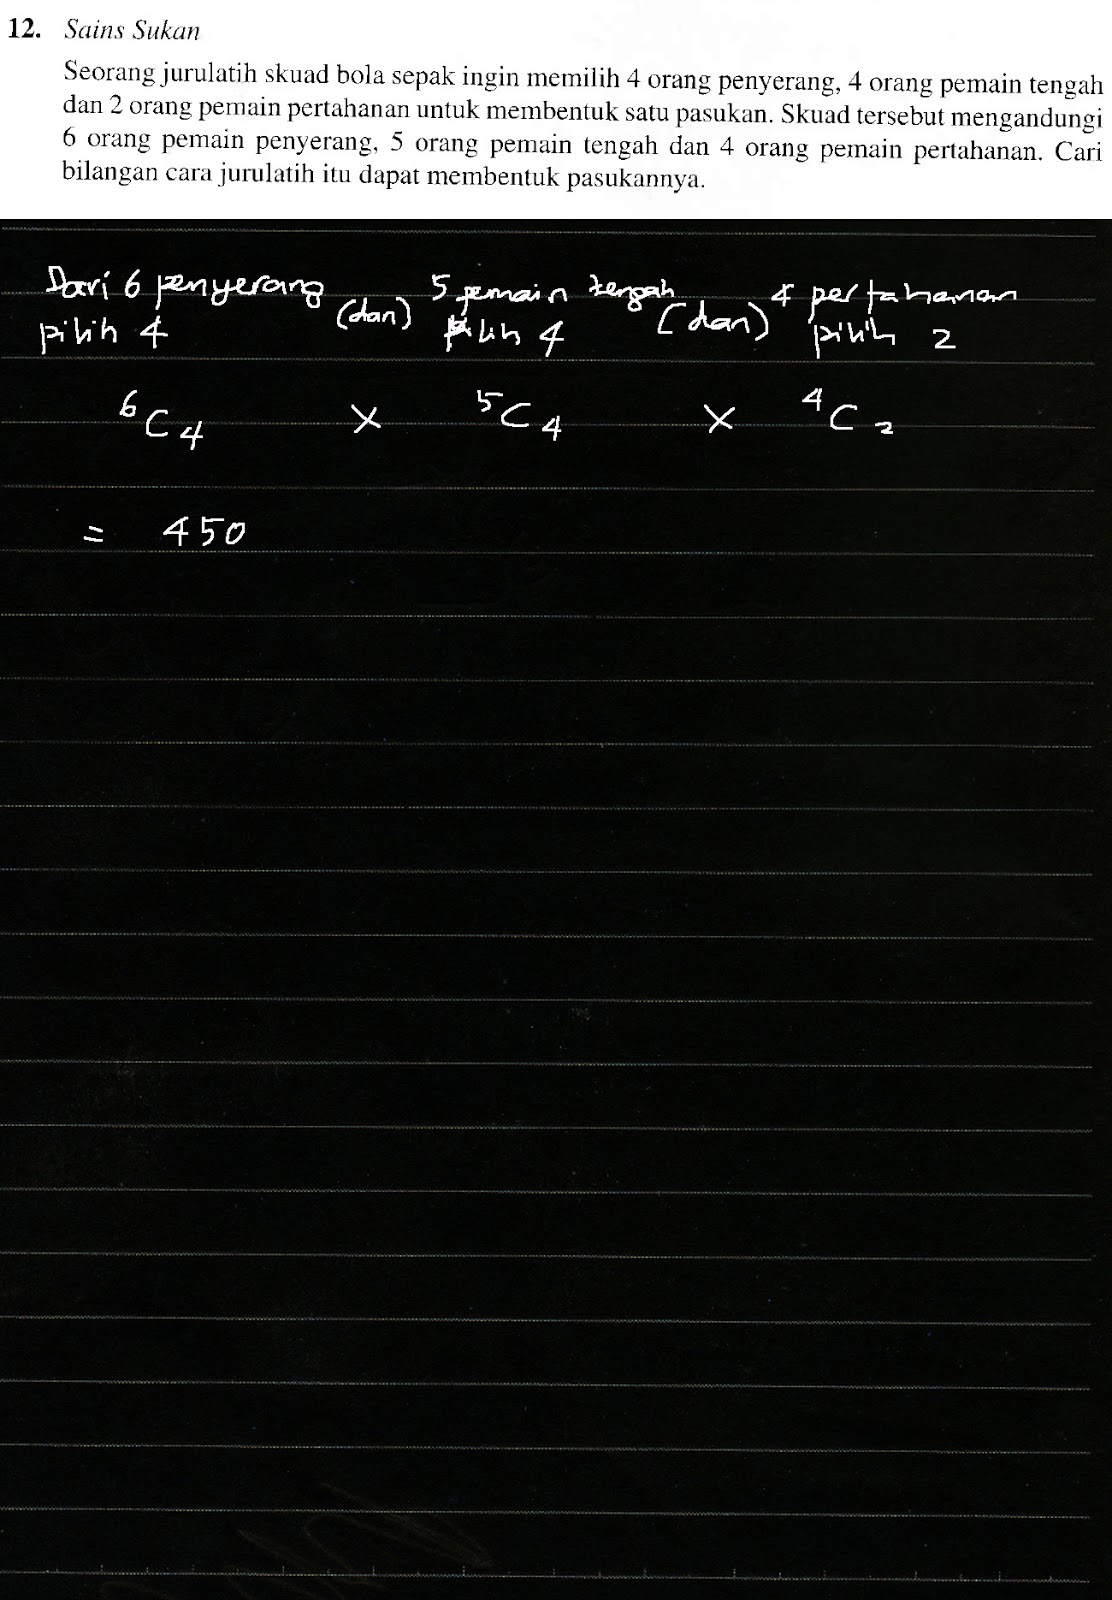 12. Sains Sukan
Seorang jurulatih skuad bola sepak ingin memilih 4 orang penyerang, 4 orang pemain tengah
dan 2 orang pemain pertahanan untuk membentuk satu pasukan. Skuad tersebut mengandungi
6 orang pemain penyerang, 5 orang pemain tengah dan 4 orang pemain pertahanan. Cari
bilangan cara jurulatih itu dapat membentuk pasukannya.
Dari 6 penyerang (dan) 5 pemain tengah (dan) 4 pertahanan
pilih 4 pilih 4 pilih 2
⁶C₄ × ⁵C₄ × ⁴C₂
= 450